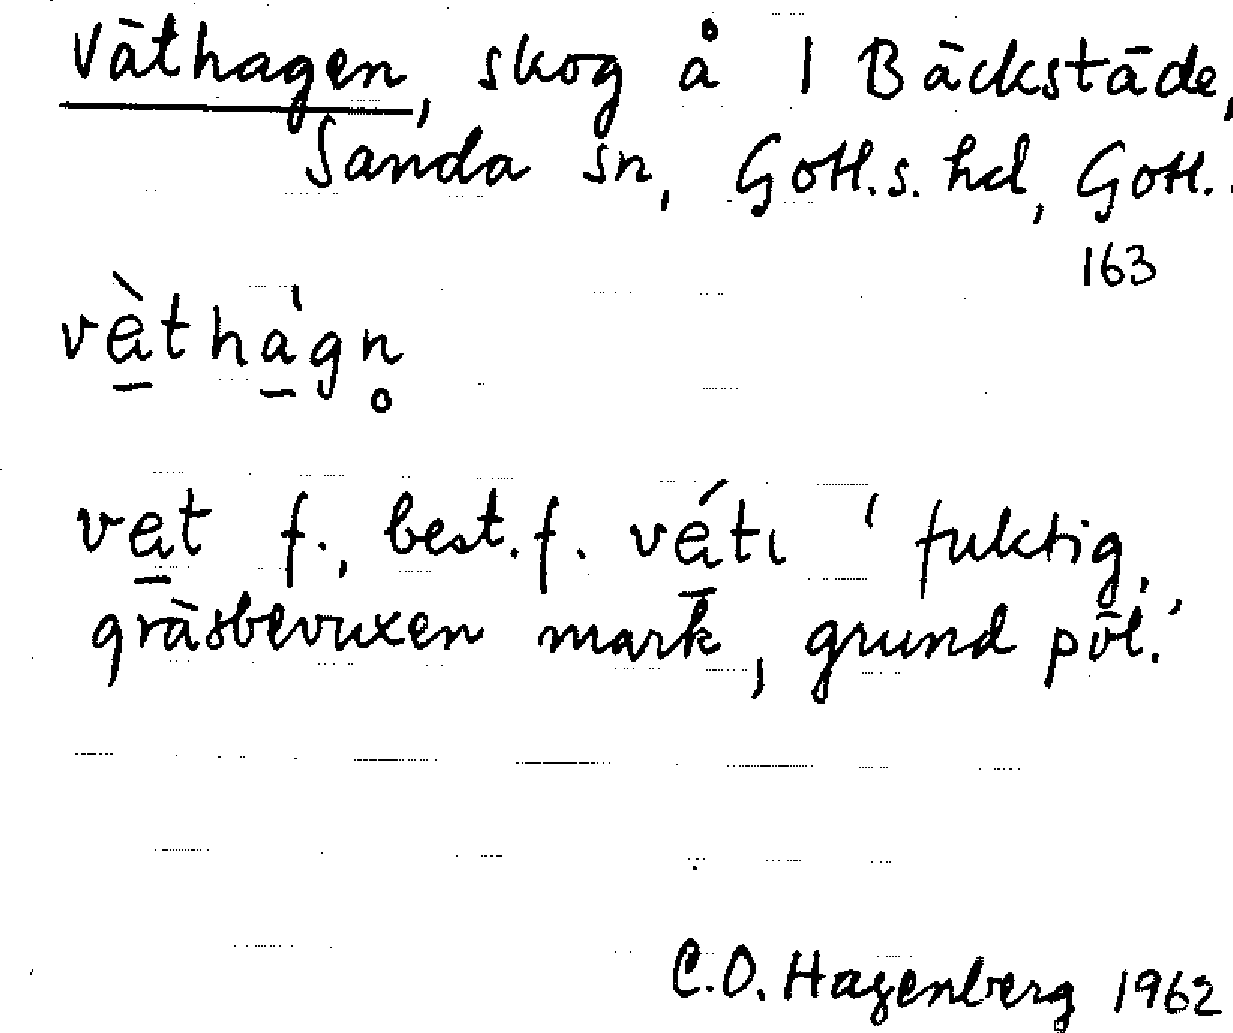 Väthagen, skog å 1 Bäckstäde,
Sanda sn, Gotl.s. hd, Gotl.
163
vè̱thà̱gn̥
ve̱t f., best.f. vé̱tı ' fuktig,
gräsbevuxen mark, grund pöl.'
C.O. Hagenberg 1962